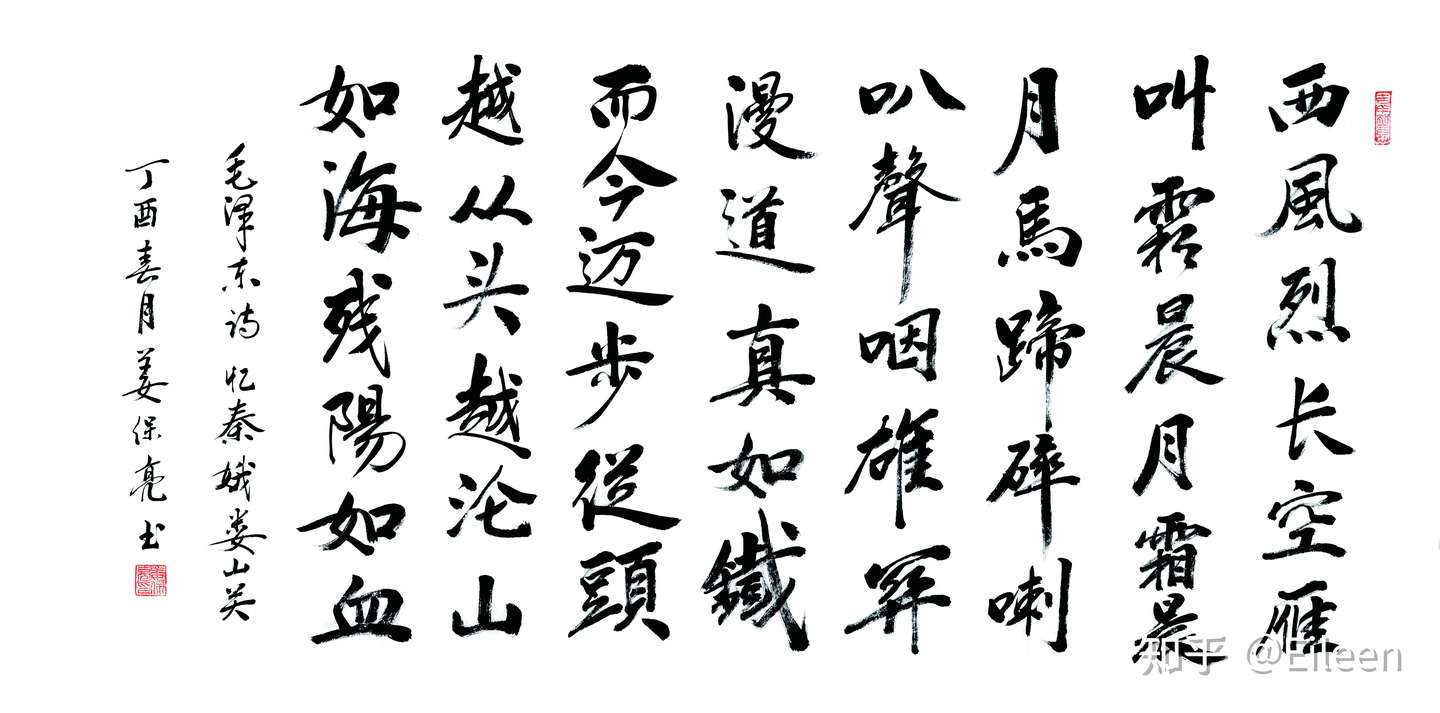 西風烈长空雁
叫霜晨月霜晨
月馬蹄碎喇
叭聲咽雄關
漫道真如鐵
而今迈步從頭
越从头越沦山
如海残陽如血
毛泽东诗忆秦娥娄山关
丁酉春月姜保亮书
知乎 @Eileen